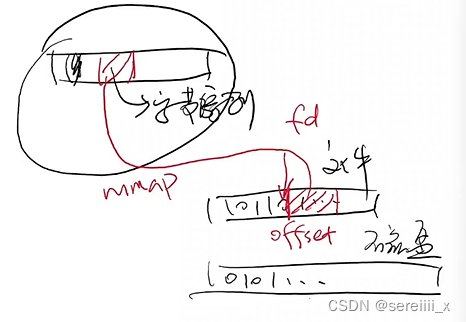 字节序列
fd
mmap
文件
1011
offset
磁盘
0101...
CSDN @sereiiii_x